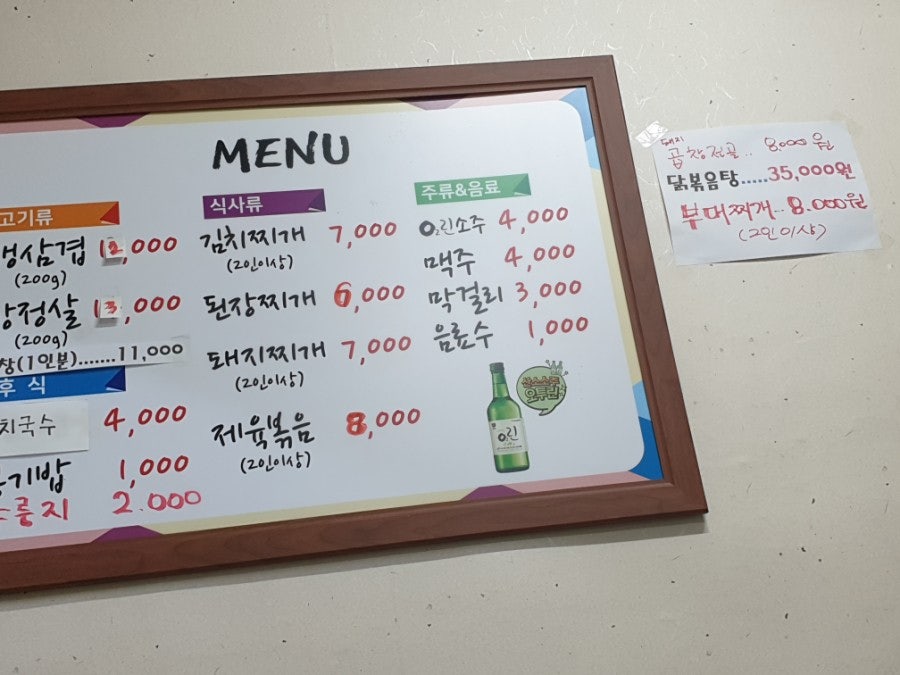 MENU
고기류
생삼겹 12,000
(200g)
항정살 13,000
(200g)
창(1인분).......11,000
후식
치국수 4,000
공기밥 1,000
누룽지 2.000
식사류
김치찌개 7,000
(2인이상)
된장찌개 6,000
돼지찌개 7,000
(2인이상)
제육볶음 8,000
(2인이상)
주류&음료
O2린소주 4,000
맥주 4,000
막걸리 3,000
음료수 1,000
산소소주
오투린
O2린
돼지
곱창전골.. 8.000원
닭볶음탕.....35,000원
부대찌개.. 8.000원
(2인이상)